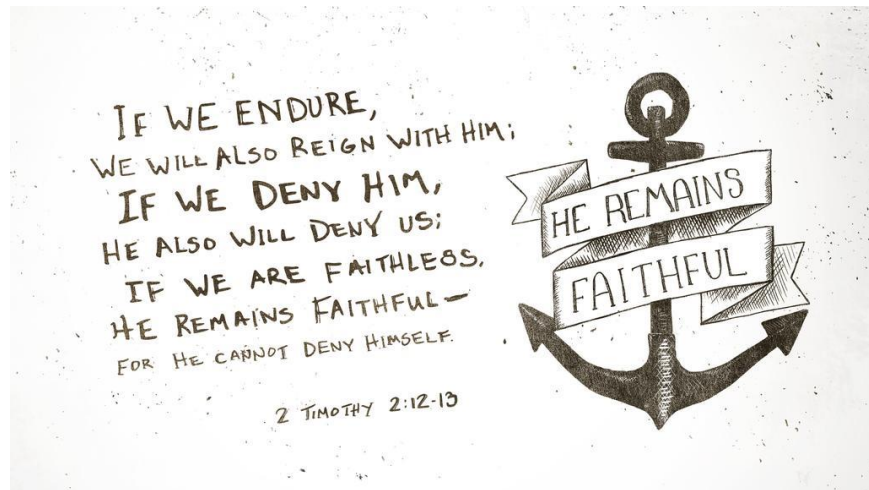 IF WE ENDURE,
WE WILL ALSO REIGN WITH HIM;
IF WE DENY HIM,
HE ALSO WILL DENY US;
IF WE ARE FAITHLESS,
HE REMAINS FAITHFUL—
FOR HE CANNOT DENY HIMSELF.
2 TIMOTHY 2:12-13
HE REMAINS
FAITHFUL